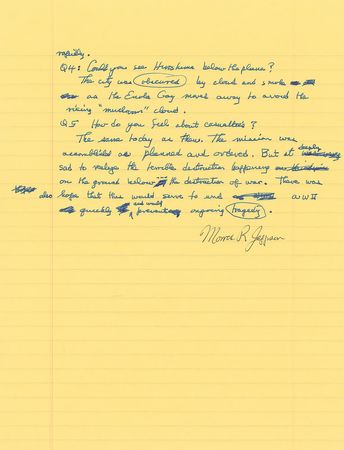 rapidly.
Q4: Could you see Hiroshima below the plane?
The city was obscured by cloud and smoke
as the Enola Gay moved away to avoid the
rising "mushroom" cloud.
Q5 How do you feel about casualties?
The same today as then. The mission was
accomplished as planned and ordered. But it deeply
sad to realize the terrible destruction happening
on the ground below the destruction of war. There was
also hope that this would serve to end WWII
quickly and would prevent ongoing tragedy.
Morris R. Jeppson